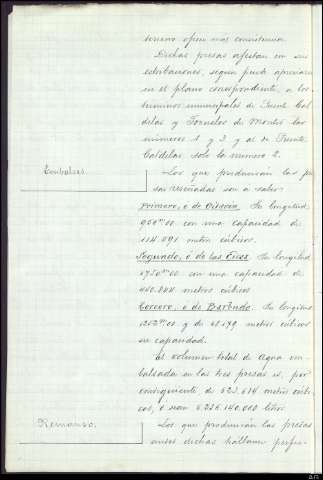 terreno ofrece mas consistencia.
Dichas presas afectan en sus
estribaciones, segun puede apreciarse
en el plano correspondiente, a los
terminos municipales de Puente Cal
delas y Fornelos de Montes las
numeros 1 y 3 y al de Puente
Caldelas solo la numero 2.
Embalses
Los que producirán las pre
sas reseñadas son a saber
Primero, ó de
Su longitud
950m00 con una capacidad de
114.091 metros cúbicos.
Segundo, ó de las
Su longitud
1750m00 con una capacidad de
460.844 metros cúbicos
Tercero, ó de Barbudo. Su longitud
1202m00 y de 48.679 metros cúbicos
su capacidad.
El volumen total de agua em
balsada en las tres presas es, por
consiguiente de 623.614 metros cúbi
cos, ó sean
litros
Remanso.
Los que producirán las presas
antes dichas hallanse perfec